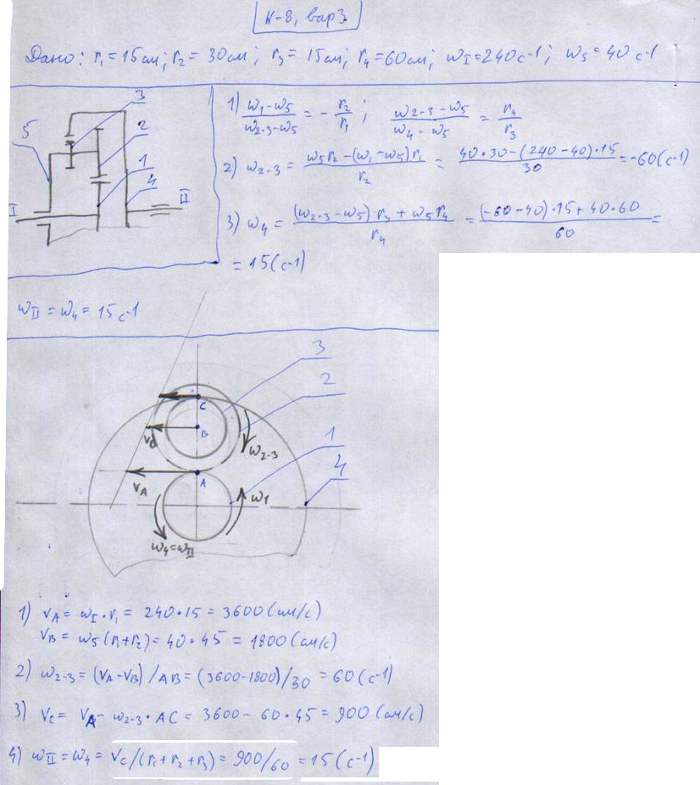 К-8, вар3.
Дано: r₁=15см; r₂= 30см; r₃= 15см; r₄=60см; ω_I=240с-1; ω₅=40с-1
3
5
2
1
4
I
II
1) (ω₁-ω₅)/(ω₂₋₃-ω₅) = - r₂/r₁; (ω₂₋₃-ω₅)/(ω₄-ω₅) = r₄/r₃
2) ω₂₋₃ = (ω₅r₂-(ω₁-ω₅)r₁)/r₂ = (40·30-(240-40)·15)/30 = -60(с-1)
3) ω₄ = ((ω₂₋₃-ω₅)r₃+ω₅r₄)/r₄ = ((-60-40)·15+40·60)/60 =
= 15(с-1)
ω_II = ω₄ = 15с-1
3
2
1
4
C
B
A
V_B
V_A
ω₂₋₃
ω₁
ω₄=ω_II
1) V_A = ω_I·r₁ = 240·15 = 3600(см/с)
V_B = ω₅(r₁+r₂) = 40·45 = 1800(см/с)
2) ω₂₋₃ = (V_A-V_B)/AB = (3600-1800)/30 = 60(с-1)
3) V_C = V_A - ω₂₋₃·AC = 3600-60·45 = 900(см/с)
4) ω_II = ω₄ = V_C/(r₁+r₂+r₃) = 900/60 = 15(с-1)